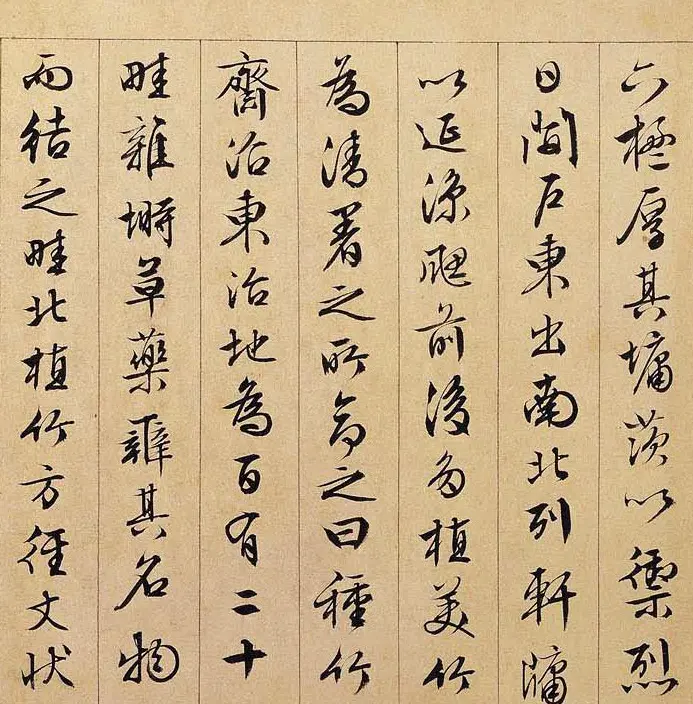 六楹厚其墉茨以禦烈
日開戶東出南北列軒牖
以延涼颸前後多植美竹
為清暑之所命之曰種竹
齋沼東治地為百有二十
畦雜塒草藥辨其名物
而結之畦北植竹方徑丈狀